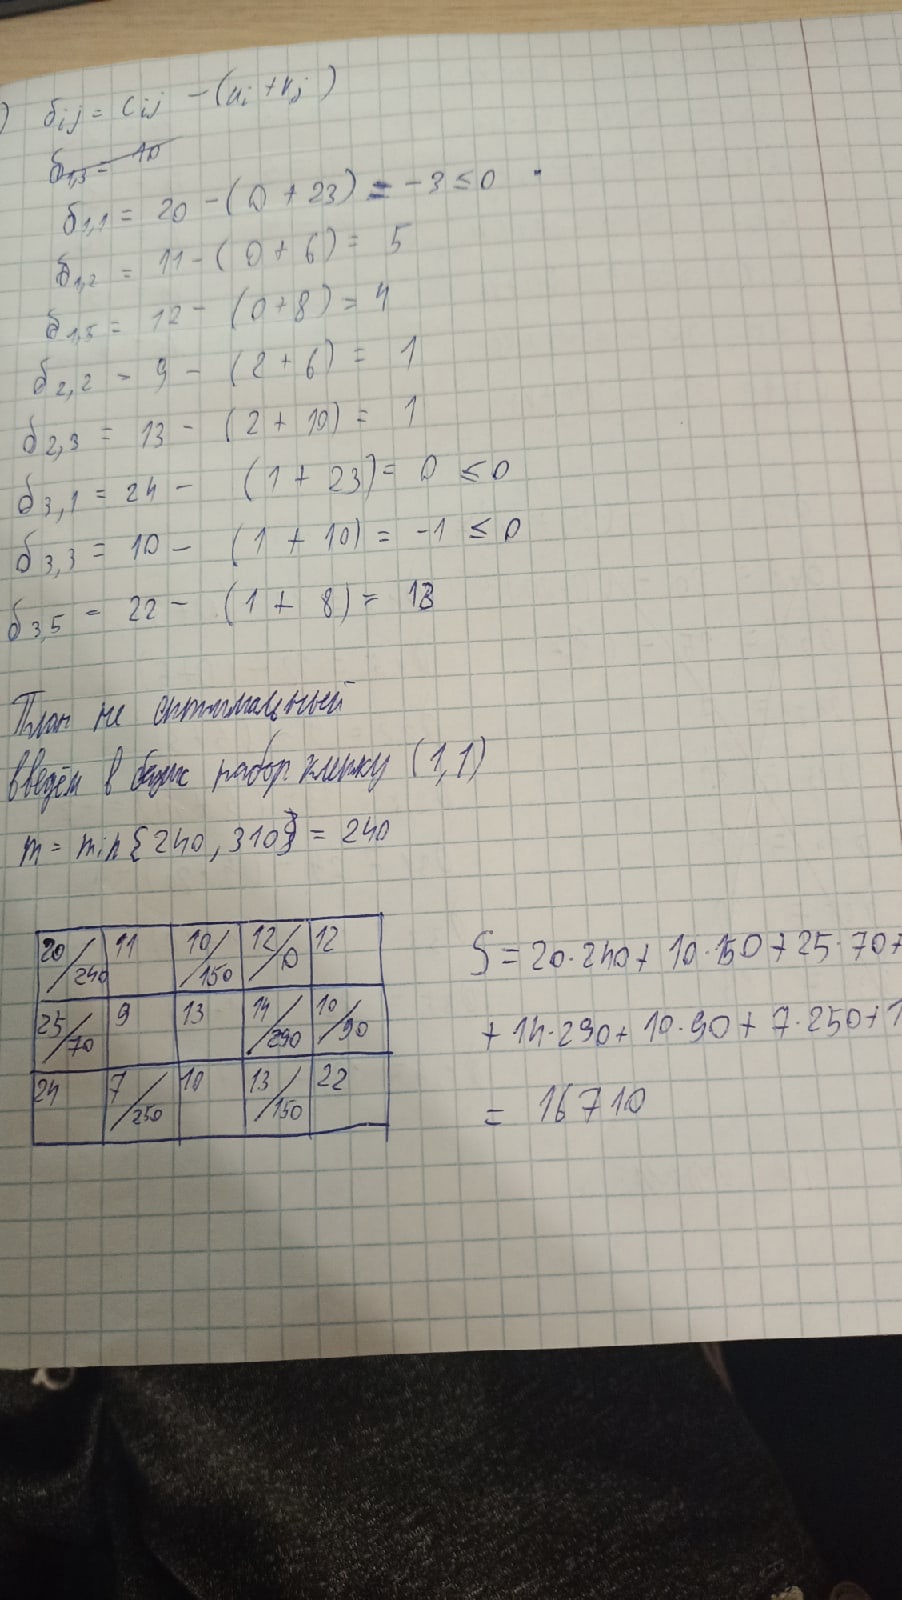 ) δij = cij - (ui + vj)
δ1,3 = 10
δ1,1 = 20 - (0 + 23) = -3 ≤ 0
δ1,2 = 11 - (0 + 6) = 5
δ1,5 = 12 - (0+8) = 4
δ2,2 = 9 - (2 + 6) = 1
δ2,3 = 13 - (2 + 10) = 1
δ3,1 = 24 - (1 + 23) = 0 ≤ 0
δ3,3 = 10 - (1 + 10) = -1 ≤ 0
δ3,5 = 22 - (1 + 8) = 13
План не оптимальный
введём в базис клетку (1,1)
m = min{240, 310} = 240
20/240 11 10/150 12/0 12
25/70 9 13 14/290 10/90
24 7/250 10 13/150 22
S = 20·240 + 10·150 + 25·70 +
+ 14·290 + 10·90 + 7·250 + 1
= 16710